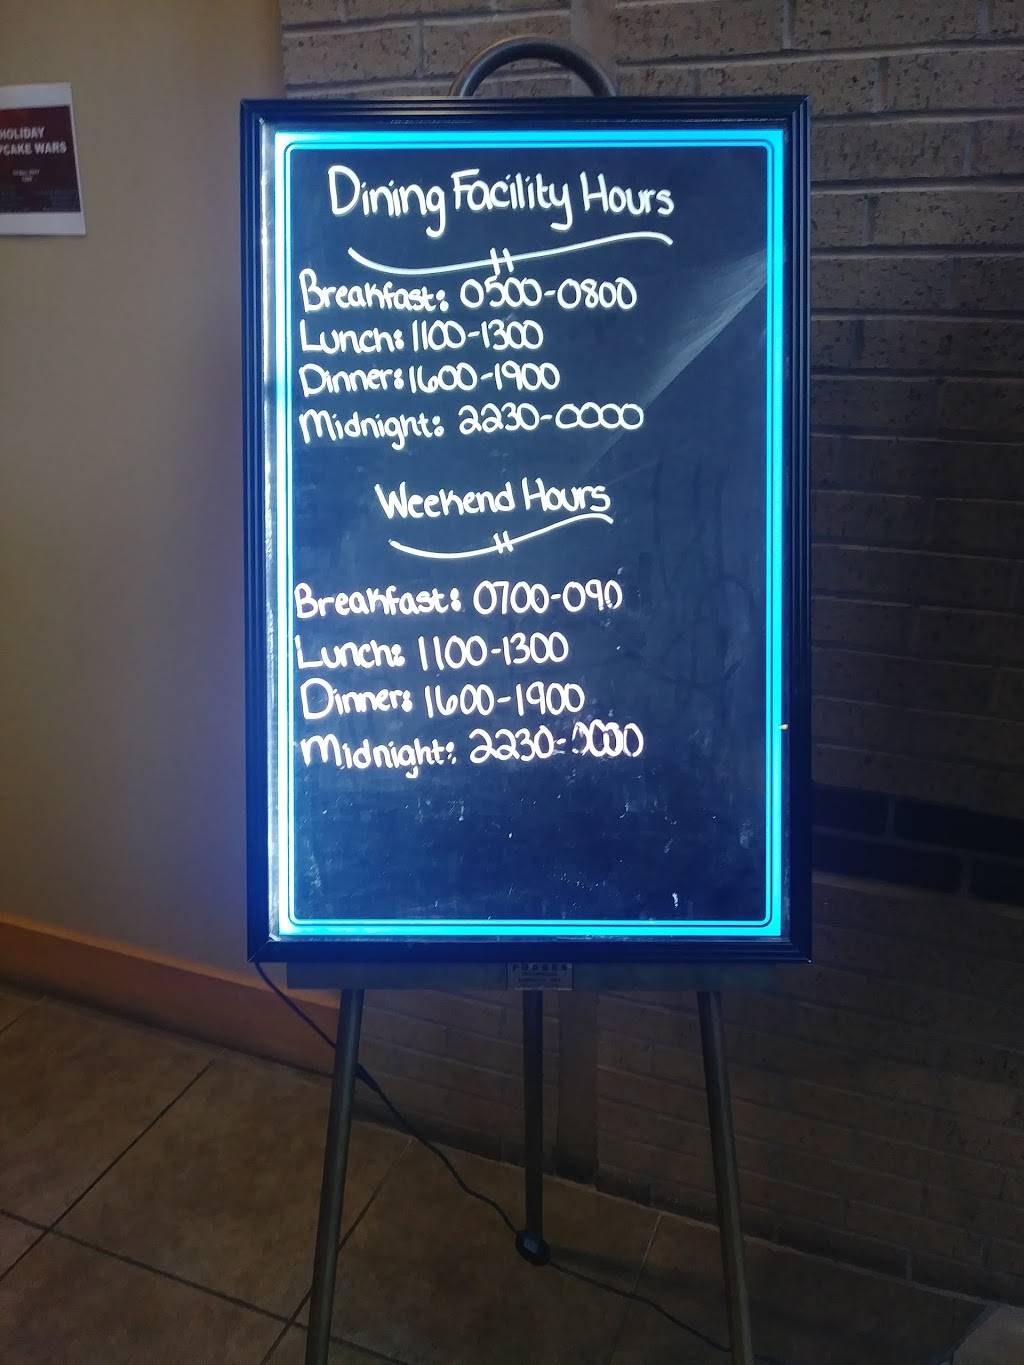 HOLIDAY
CAKE WARS
Dining Facility Hours
Breakfast: 0500-0800
Lunch: 1100-1300
Dinner: 1600-1900
Midnight: 2230-0000
Weekend Hours
Breakfast: 0700-090
Lunch: 1100-1300
Dinner: 1600-1900
Midnight: 2230-0000